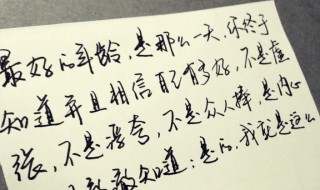 最好的年龄,是那么一天,你终于
知道并且相信自己有多好,不是虚
张,不是浮夸,不是众人捧,是内心
澈知道:是的,我就是这么